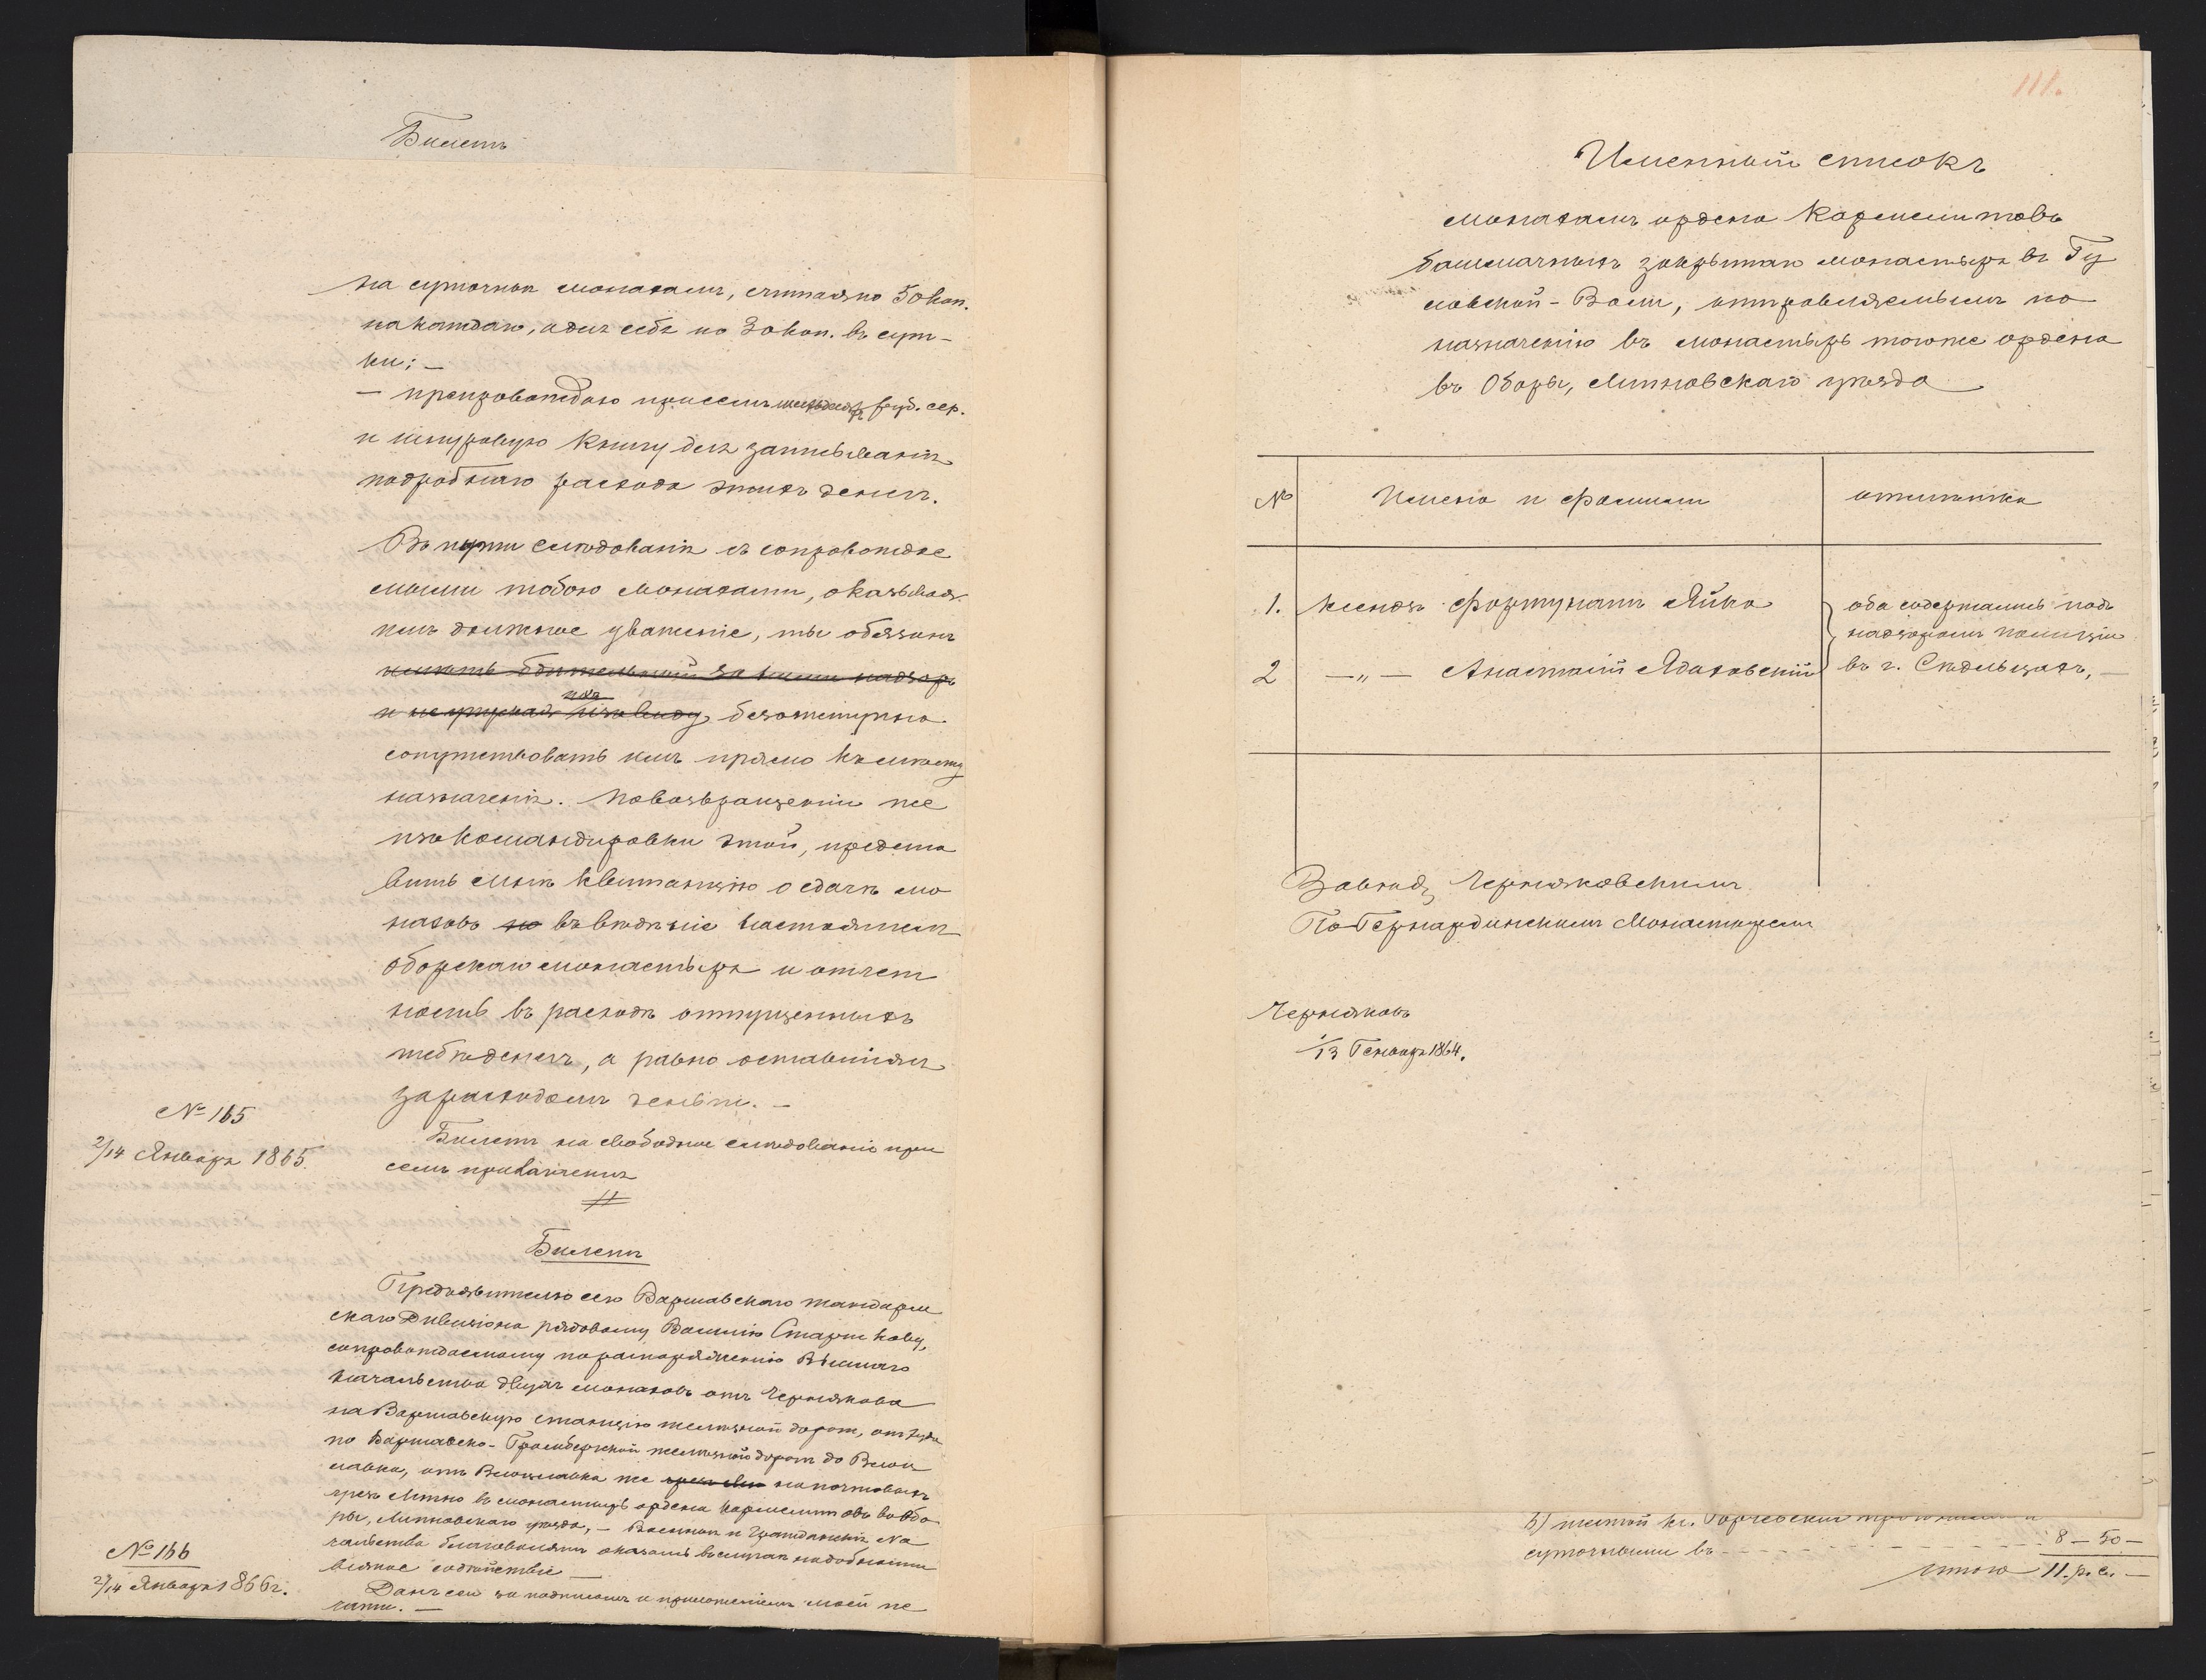 Билетъ
на суточныя монахамъ, считая по 50 коп.
на каждаго, а для себя по 30 коп. въ сут-
ки; —
— препровождаю при семъ руб. сер.
и шнуровую книгу для записыванія
подробнаго расхода этихъ денегъ.
Въ пути слѣдованія съ сопровождае
мыми тобою монахами, оказывая
имъ должное уваженіе, ты обязанъ
имѣть бдительный за ними надзоръ
и не упуская изъ виду, безотлучно
сопутствовать имъ прямо къ мѣсту
назначенія. По возвращеніи же
изъ командировки этой, предста
вить мнѣ квитанцію о сдачѣ мо
наховъ въ вѣдѣніе настоятеля
Оборскаго монастыря и отчет
ность въ расходѣ отпущенныхъ
тебѣ денегъ, а равно оставшіяся
за расходомъ деньги. —
Билетъ на свободное слѣдованіе при
семъ прилагается
№ 165
2/14 Января 1865.
Билетъ
Предъявителю сего Варшавскаго жандарм
скаго Дивизіона рядовому Василію Старикову,
сопровождаемому по распоряженію Высшаго
начальства двухъ монаховъ отъ Чернякова
на Варшавскую станцію желѣзной дороги, оттуда
по Варшавско-Бромбергской желѣзной дорогѣ до Влоц
лавка, отъ Влоцлавка же на почтовыхъ
чрезъ Липно въ монастырь ордена Кармелитовъ въ Обо
ры, Липновскаго уѣзда, — Военныя и Гражданскія На
чальства благоволятъ оказать въ случаѣ надобности
всякое содѣйствіе —
Данъ сей за подписомъ и приложеніемъ моей пе
чати. —
№ 166
2/14 Января 1866 г.
111.
Именный списокъ
монахамъ ордена Кармелитовъ
башмачныхъ закрытаго монастыря въ Гу
ловской-Воли, отправляемымъ по
назначенію въ монастырь тогоже ордена
въ Оборы, Липновскаго уѣзда
№ Имена и фамиліи отмѣтка
1. Ксендзъ Фортунатъ Яйко оба содержались подъ
надзоромъ полиціи
2 —„— Анастасій Адаховскій въ г. Сѣдльцахъ, —
Завѣд. Черняковскимъ
По-Бернардинскимъ Монастыремъ
Черняковъ
1/13 Генваря 1864.
суточными въ 8 — 50 —
итого 11. р. с. —